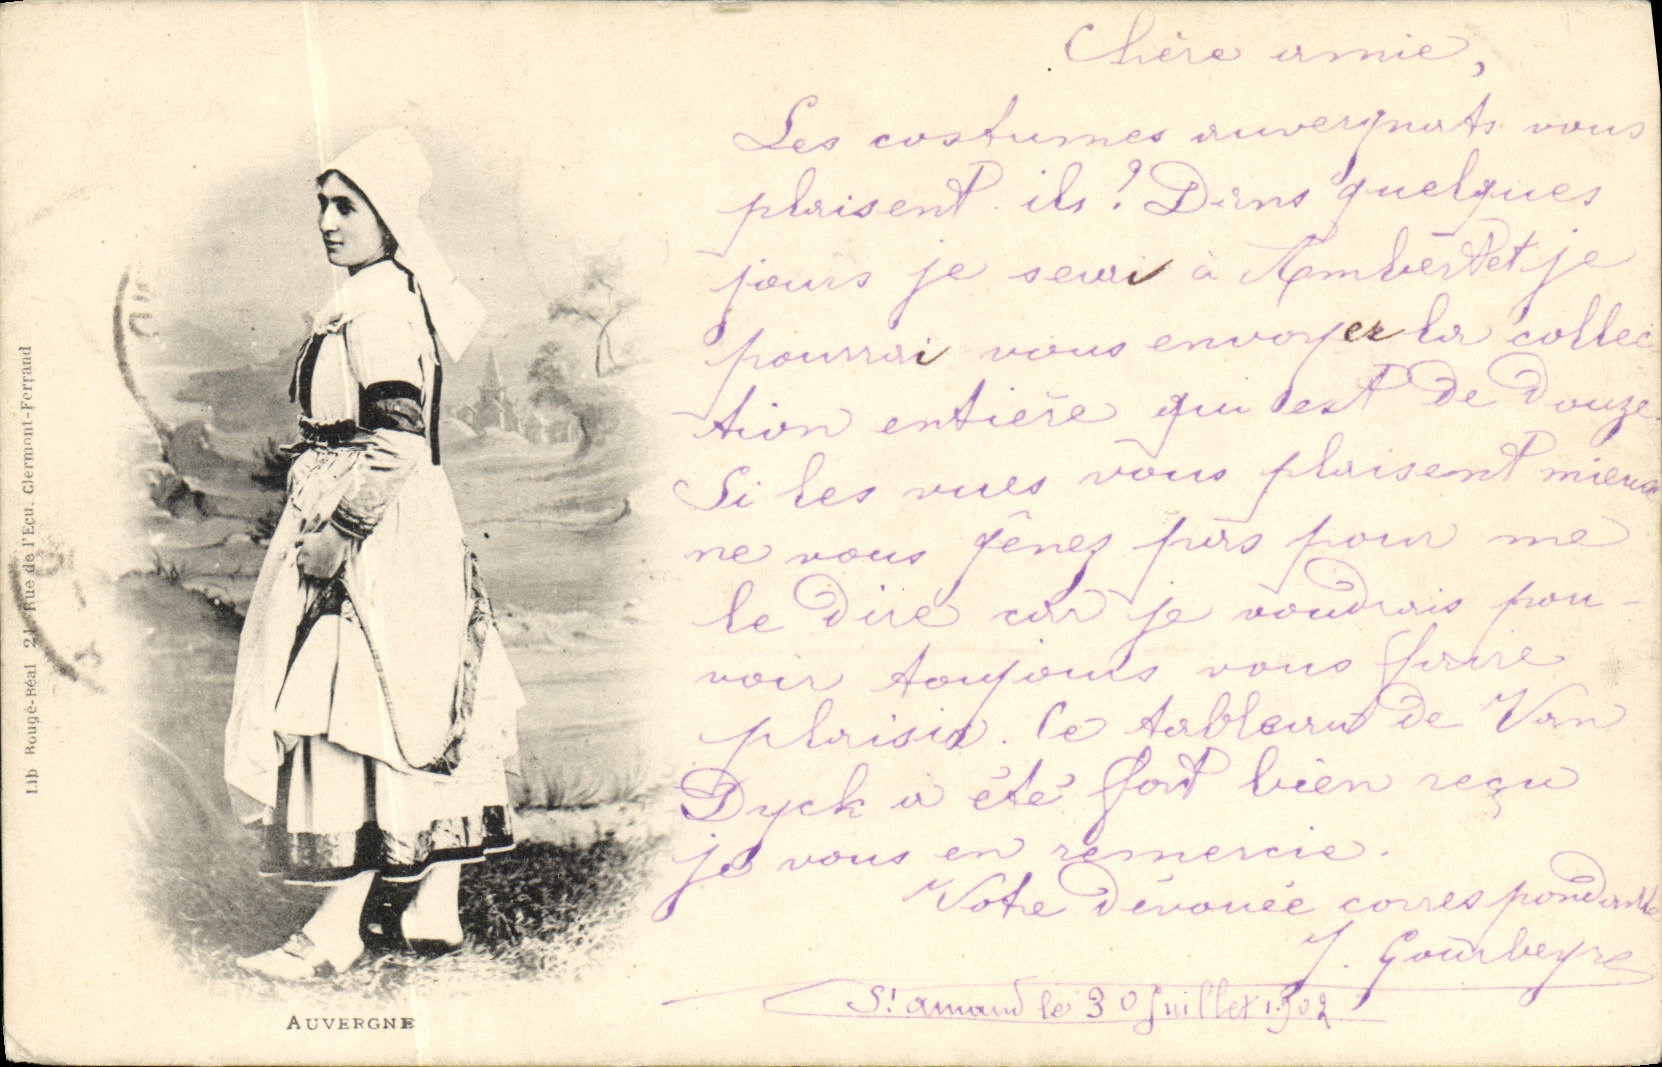 Chère amie,
Les costumes auvergnats vous
plaisent ils ? Dans quelques
jours je serai à Ambert et je
pourrai vous envoyer la collec
tion entière qui est de douze.
Si les vues vous plaisent mieux
ne vous gênez pas pour me
le dire car je voudrais pou-
voir toujours vous faire
plaisir. Le tableau de Van
Dyck a été fort bien reçu
je vous en remercie.
Votre dévouée correspondante
J. Gourbeyre
St amand le 30 Juillet 1902
AUVERGNE
Lib Rougé-Béal 21, Rue de l'Ecu. Clermont-Ferrand